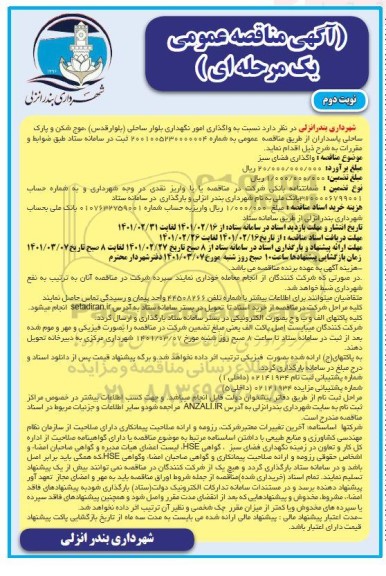 (آگهی مناقصه عمومی
یک مرحله ای )
۱۳۹۱
شهرداری بندرانزلی
نوبت دوم
شهرداری بندرانزلی در نظر دارد نسبت به واگذاری امور نگهداری بلوار ساحلی (بلوارقدس) موج شکن و پارک
ساحلی پاسداران از طریق مناقصه عمومی به شماره ۲۰۰۱۰۰۵۲۳۰۰۰۰۰۴ ثبت در سامانه ستاد طبق ضوابط و
مقررات به شرح ذیل اقدام نماید.
موضوع مناقصه : واگذاری فضای سبز
مبلغ برآورد: ۲۰/۰۰۰/۰۰۰/۰۰۰ ریال
مبلغ تضمین:
نوع تضمین : ضمانتنامه بانکی شرکت در مناقصه یا یا واریز نقدی در وجه شهرداری و به شماره حساب
بانک ملی به نام شهرداری بندر انزلی و بارگذاری در سامانه ستاد
هزینه خرید اسناد مناقصه : مبلغ ۱/۰۰۰/۰۰۰ ریال واریزبه حساب شماره ۰۱۰۷۶۳۲۷۵۹۰۰۱ بانک ملی بحساب
شهرداری بندرانزلی از طریق سامانه ستاد
تاریخ انتشار و مهلت بازدید اسناد در سامانه ستاد: از ۱۴۰۱/۰۲/۱۶ لغایت ۱۴۰۱/۰۲/۳۱
مهلت دریافت اسناد مناقصه : از تاریخ ۱۴۰۱/۰۲/۱۶ لغایت ۱۴۰۱/۰۲/۲۶
مهلت ارائه پیشنهاد و بارگذاری اسناد در سامانه ستاد از ۸ صبح تاریخ ۱۴۰۱/۰۲/۲۷ لغایت ۸ صبح تاریخ ۱۴۰۱/۰۳/۰۷
زمان بازگشایی پیشنهادها ساعت ۱۰ صبح روز شنبه مورخ ۱۴۰۱/۰۳/۰۷ دفترشهردار محترم
-هزینه آگهی به عهده برنده مناقصه می باشد.
.در صورتی که شرکت کنندگان از انجام معامله خودداری نمایند سپرده شرکت در مناقصه آنان به ترتیب به نفع
شهرداری ضبط خواهد شد.
متقاضیان میتوانند برای اطلاعات بیشتر با شماره تلفن ۴۴۵۰۸۲۶۶ واحد پیمان و رسیدگی تماس حاصل نمایند
کلیه مراحل شرکت در مناقصه از خرید اسناد تا تحویل در بستر سامانه ستاد به آدرس setadiran.ir انجام میشود.
کلیه پاکتهای الف و ب و ج بصورت الکترونیکی در بستر سامانه ستاد بارگذاری و ارسال گردد.
شرکت کنندگان میبایست اصل پاکت الف یعنی مبلغ تضمین شرکت در مناقصه را بصورت فیزیکی و مهر و موم شده
بعد از ثبت در سامانه ستاد تا ساعت ۸ صبح روز شنبه مورخ ۱۴۰۱/۰۳/۰۷ شهرداری مرکزی به دبیرخانه تحویل
دهند.
به پاکتهای(ج) ارائه شده بصورت فیزیکی ترتیب اثر داده نخواهد شد و برگه پیشنهاد قیمت پس از دانلود اسناد و
درج مبلغ در سامانه بارگذاری گردد.
شماره پشتیبانی ثبت نام ۰۲۱۴۱۹۳۴ (داخلی ۱)
شماره پشتیبانی مزایده ۰۲۱۴۱۹۳۴ (داخلی ۵)
مراحل ثبت نام از طریق دفاتر پیشخوان دولت قابل انجام میباشد و جهت کسب اطلاعات بیشتر در خصوص مراکز
ثبت نام به سایت شهرداری بندرانزلی به آدرس ANZALI.IR مراجعه شودو سایر اطلاعات و جزئیات مربوط در اسناد
مناقصه مندرج است.
شرکتها اساسنامه، آخرین تغییرات معتبرشرکت، رزومه و ارائه صلاحیت پیمانکاری دارای صلاحیت از سازمان نظام
مهندسی کشاورزی و منابع طبیعی با داشتن اساسنامه مرتبط به موضوع مناقصه یا دارای گواهینامه صلاحیت از اداره
کل کار و تعاون در زمینه نگهداری فضای سبز ، گواهی HSE، لیست اعضای هیات مدیره و گواهی صاحبان امضا، و
اشخاص حقوقی رزومه و ارائه صلاحیت پیمانکاری و گواهی صاحبان امضا وگواهی HSE که همگی باید برابر اصل
باشد و در سامانه ستاد بارگذاری گردد و هیچ یک از شرکت کنندگان در مناقصه نمی توانند بیش از یک پیشنهاد
تسلیم نمایند. تمام اسناد (خریداری شده)مناقصه از جمله شروط اوراق مناقصه باید به مهر و امضای مجاز تعهد آور
پیشنهاد دهنده برسد و در مستندات سامانه تدارکات الکترونیک دولت(ستاد) بارگذاری شودبه پیشنهادهای فاقد
امضا، مشروط، مخدوش و پیشنهادهایی که بعد از انقضای مدت مقرر واصل شود و همچنین پیشنهادهای فاقد سپرده
یا سپرده های مخدوش ویا کمتر از میزان مقرر چک شخصی و نظیر آن ترتیب اثر داده نخواهد شد.
-مدت اعتبار پیشنهاد مالی : پیشنهاد مالی ارائه شده می بایست به مدت سه ماه از تاریخ بازگشایی پاکت پیشنهاد
قیمت دارای اعتبار باشد.
شهرداری بندر انزلی